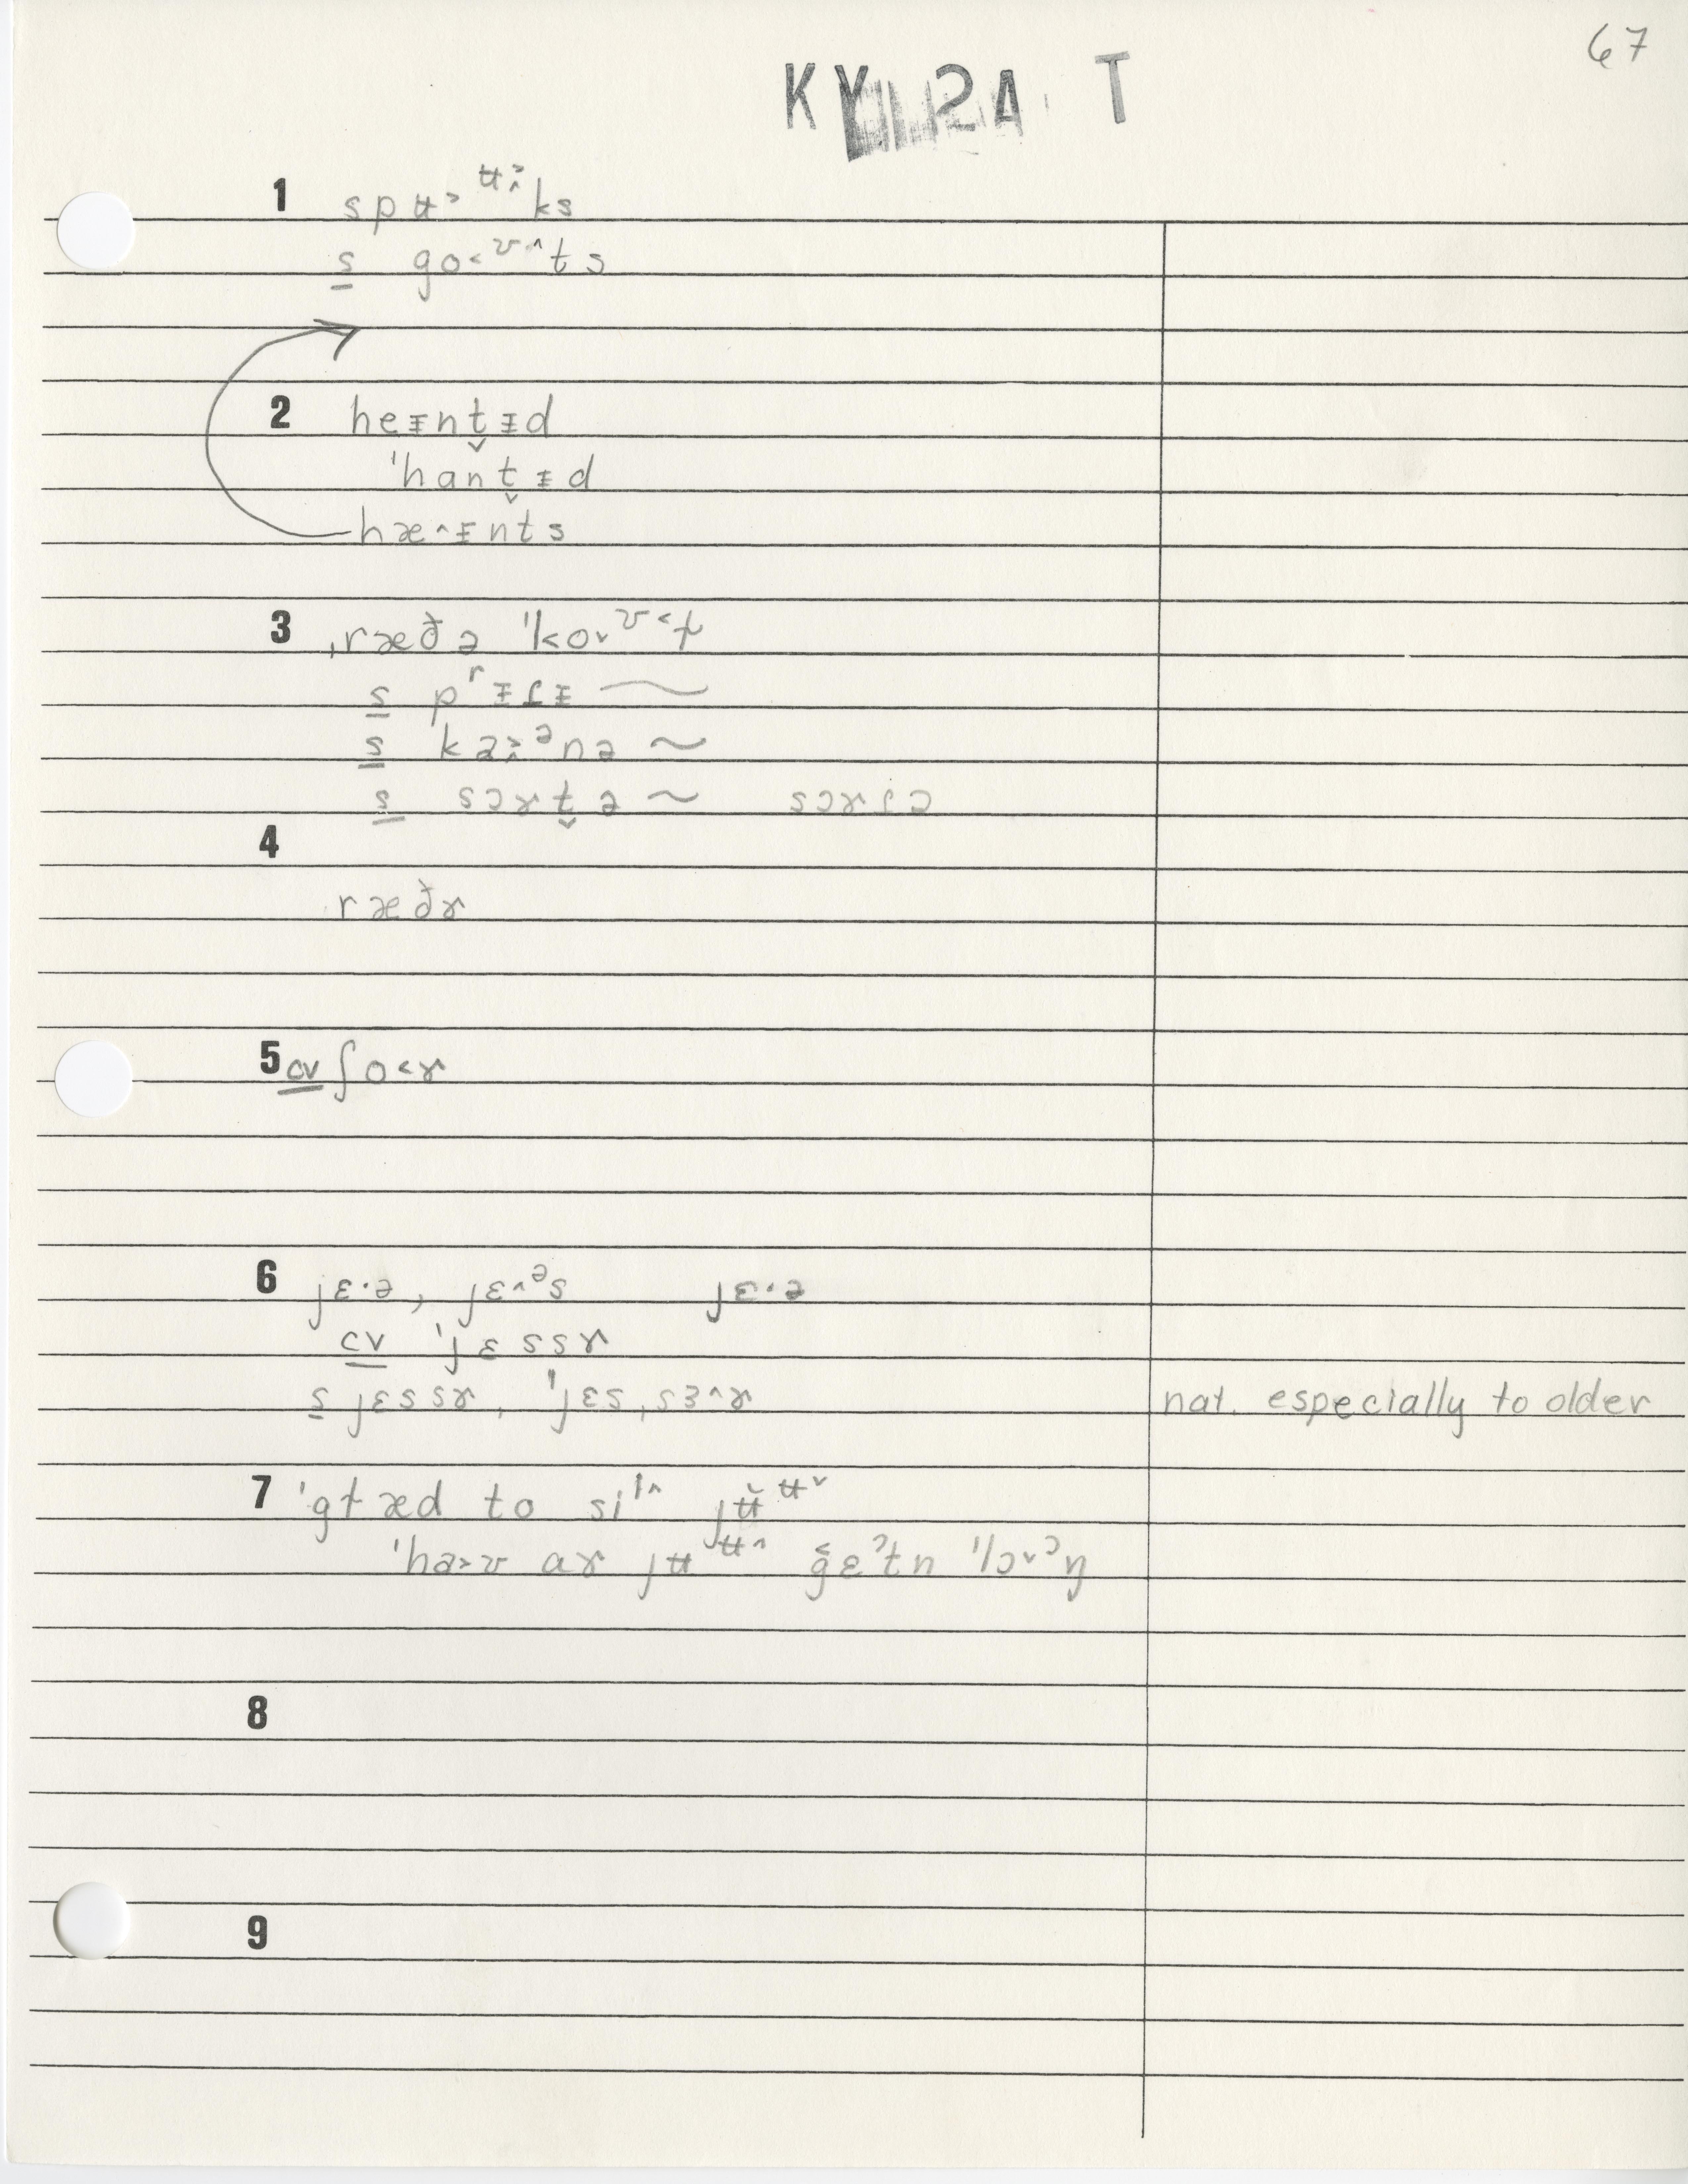 67
KY 2A T
1 spʉ˃ ᵾ˔˃ks
s̲ go˂ᶷ˄ts
2 heᵻnt̬ᵻd
ˈhant̬ᵻd
hæ˄ᵻnts
3 ˌræðə ˈko˅ᶷ˂ɫ
s̲ pʳᵻɾᵻ ~
s̲ kɑ˃˄ᵊnə ~
s̲ sɔɚt̬ə ~ sɔɚɾə
4
ræðɚ
5 cv ʃo˂ɚ
6 jɛ·ə, jɛ˄ᵊs jɛ·ə
cv ˈjɛssɚ
s̲ jɛssɚ, ˈjɛsˌsɜ˄ɚ nat. especially to older
7 ˈgɫæd to si jʉ
ˈhaʊ aɚ jʉ gɛʔtn ˈlɔ˅ᵓŋ
8
9